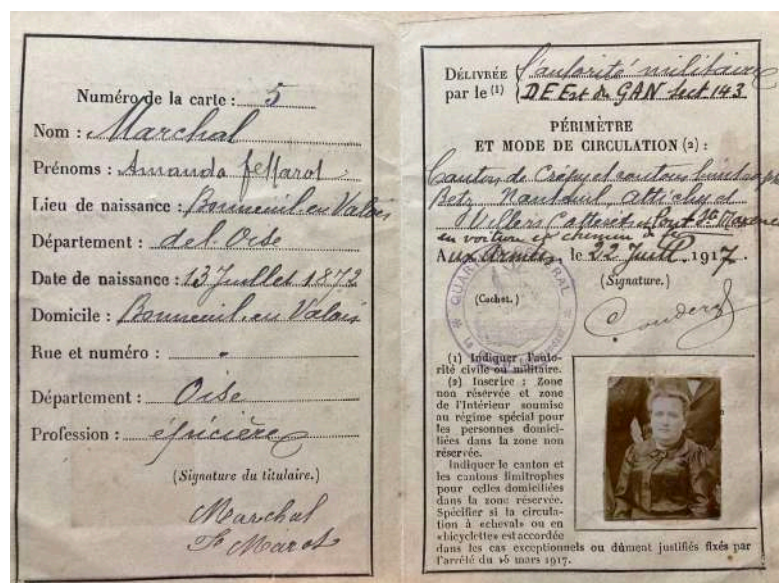 Numéro de la carte : 5
Nom : Marchal
Prénoms : Amanda
Lieu de naissance : Bonneuil en Valois
Département : de l'Oise
Date de naissance : 13 Juillet 1872
Domicile : Bonneuil en Valois
Rue et numéro :
Département : Oise
Profession : épicière
(Signature du titulaire.)
Marchal
DÉLIVRÉE l'autorité militaire
par le (1) DE Est du GAN Sect 143
PÉRIMÈTRE
ET MODE DE CIRCULATION (2) :
Canton de Crépy et cantons
Betz, Nanteuil, Attichy et
Villers Cotterets et Pont Ste Maxence
en voiture et chemin de fer
Aux Armées, le 22 1917.
(Signature.)
(Cachet.)
(1) Indiquer l'auto-
rité civile ou militaire.
(2) Inscrire : Zone
non réservée et zone
de l'Intérieur soumise
au régime spécial pour
les personnes domici-
liées dans la zone non
réservée.
Indiquer le canton et
les cantons limitrophes
pour celles domiciliées
dans la zone réservée.
Spécifier si la circula-
tion à «cheval» ou en
«bicyclette» est accordée
dans les cas exceptionnels ou dûment justifiés fixés par
l'arrêté du 15 mars 1917.